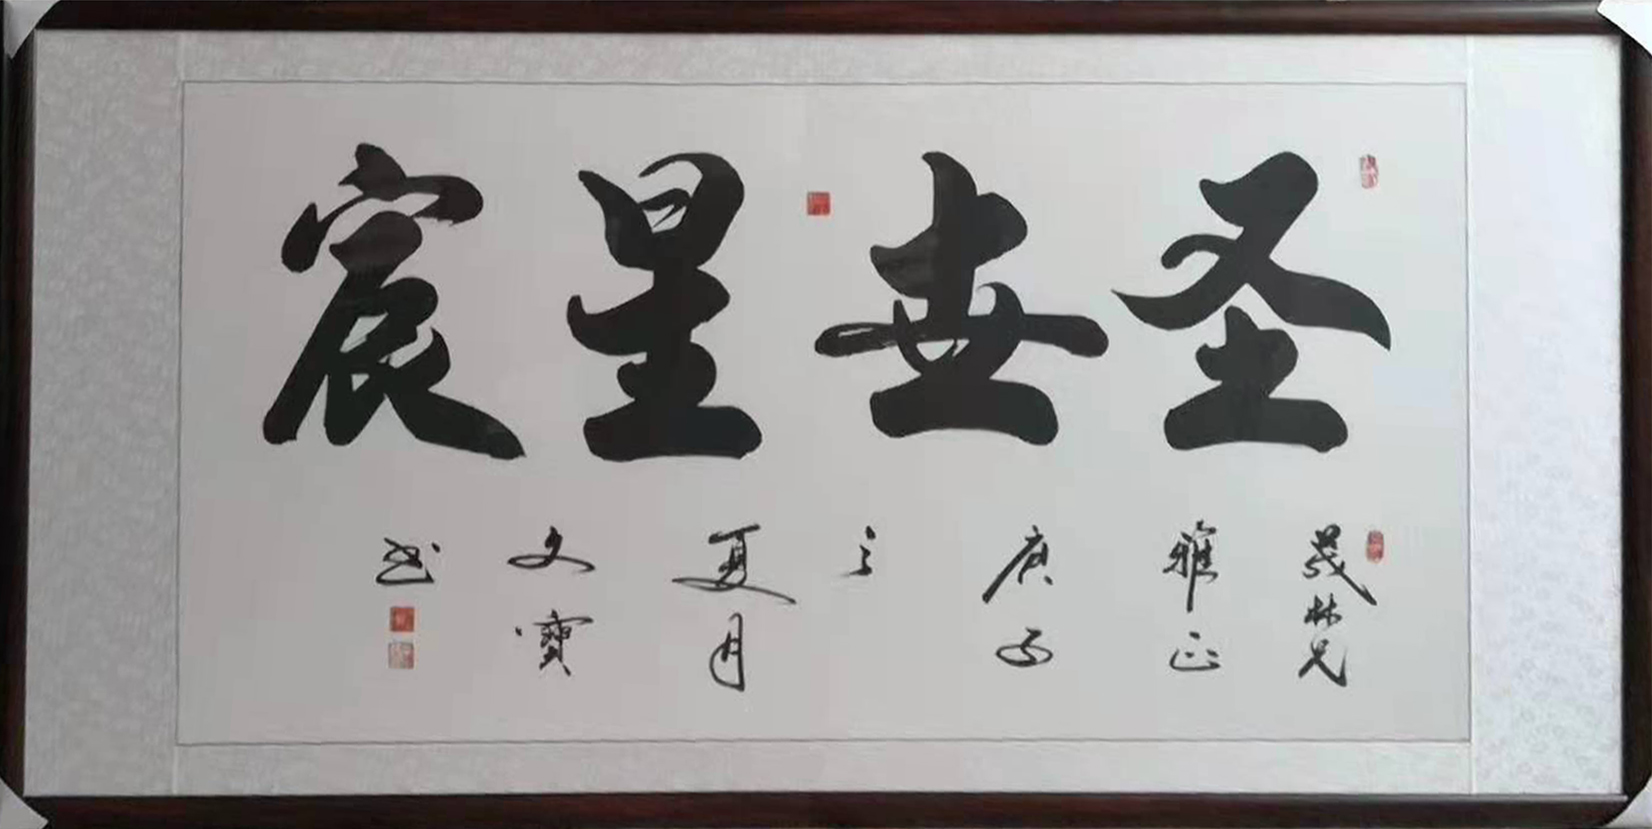 圣世星宸
晟林兄
雅正
庚子
之
夏月
文寶
书